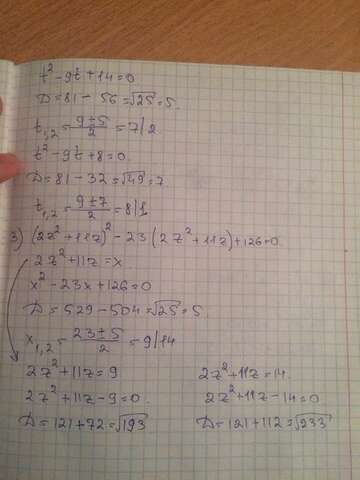 t² - 9t + 14 = 0
D = 81 - 56 = √25 = 5.
t₁,₂ = (9 ± 5)/2 = 7/2
t² - 9t + 8 = 0.
D = 81 - 32 = √49 = 7.
t₁,₂ = (9 ± 7)/2 = 8/1
3) (2z² + 11z)² - 23(2z² + 11z) + 126 = 0.
2z² + 11z = x
x² - 23x + 126 = 0
D = 529 - 504 = √25 = 5
x₁,₂ = (23 ± 5)/2 = 9/14
2z² + 11z = 9
2z² + 11z - 9 = 0.
D = 121 + 72 = √193
2z² + 11z = 14.
2z² + 11z - 14 = 0
D = 121 + 112 = √233